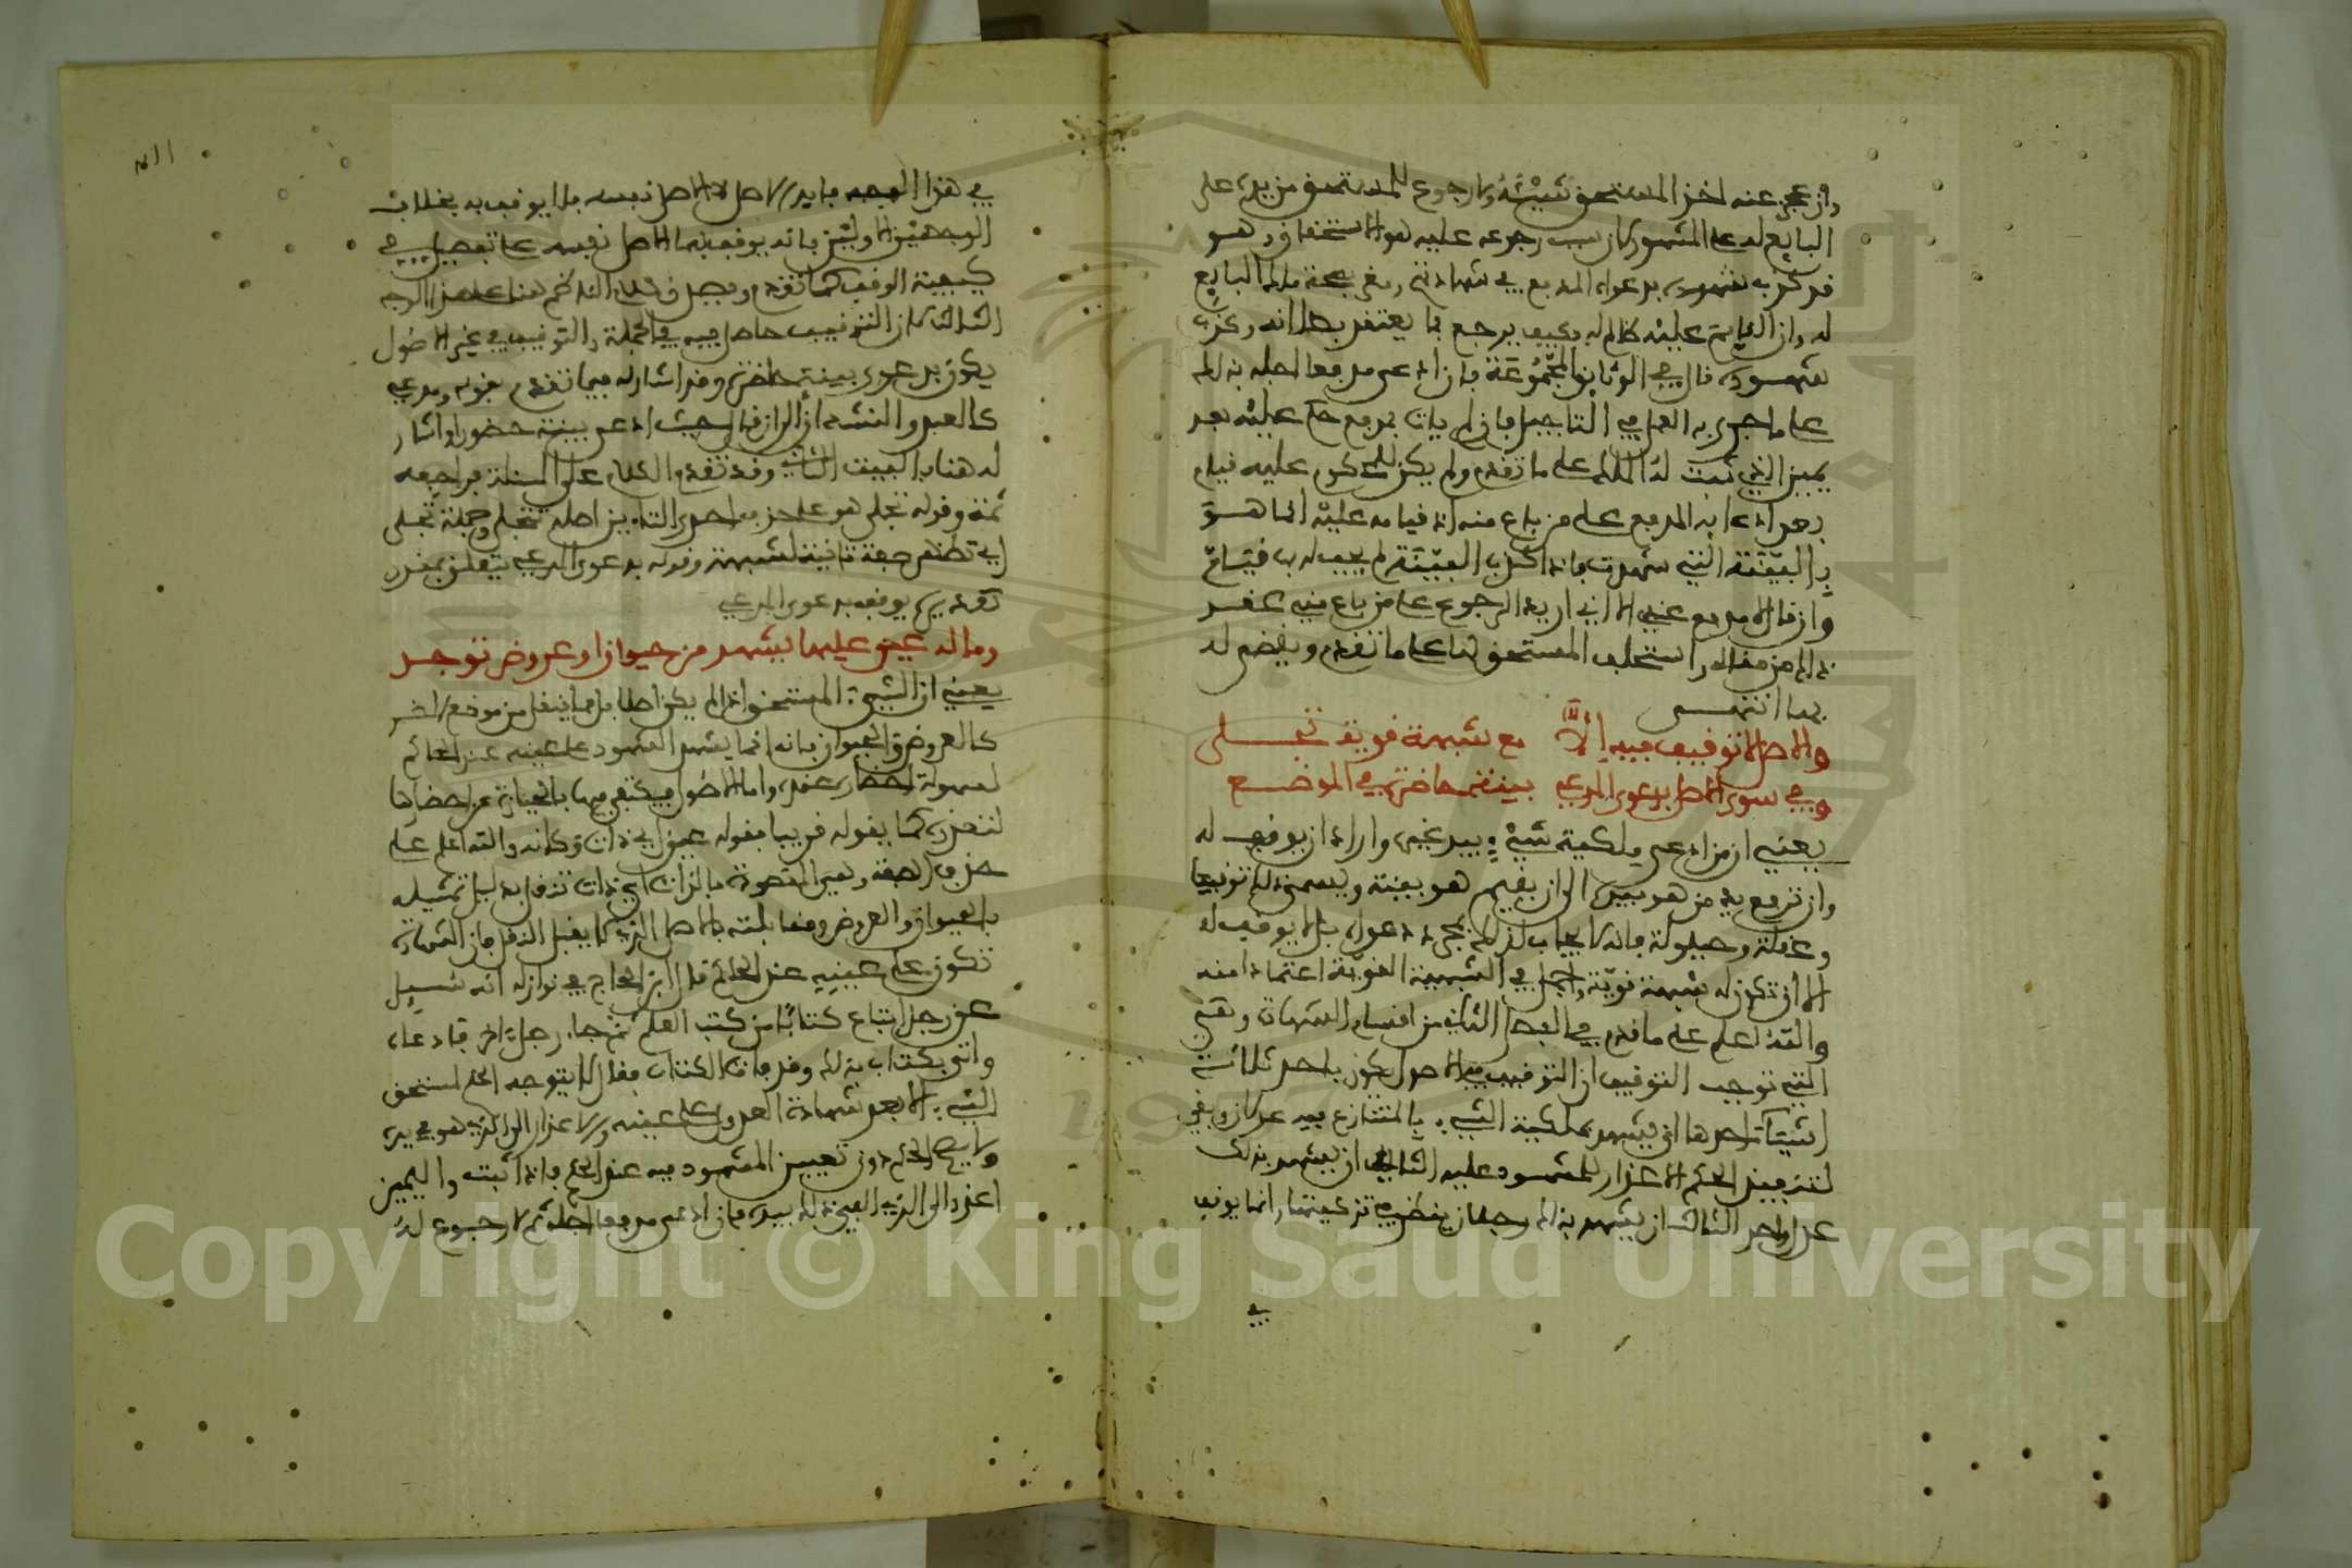 وان عجز عنه اخذ المستحق شيئه ولا رجوع للمستحق من يده على
البايع له على المشهور لان سبب رجوعه عليه هو الاستحقاق وهو
قد كذب شهوده بدعواه المدفع في شهادتهم وفي صحة ملك البايع
له وان القايم عليه ظالم له فكيف يرجع بما يعتقد بطلانه وكذب
شهوده قال في الوثائق المجموعة فان ادعى مدفعا اجله به الحاكم
على ما جرى به العمل في التاجيل فان لم يات بمدفع حكم عليه بعد
يمين الذي ثبت له الملك على ما تقدم ولم يكن للمحكوم عليه قيام
بعد ادعايه المدفع على من باع منه اذ قيامه عليه انما هو
بالبينة التي شهدت فاذا كذب البينة لم يجب له بها قيام
وان قال لا مدفع عندي الا اني اريد الرجوع على من باع مني عقد
ذلك من مقاله واستحلف المستحق لها على ما تقدم ويقضى له
بها انتهى
والاصل لا توقيف فيه الا مع شبهة قوية تجلى
وفي سوى الاصل بدعوى المدعي بينة حاضرة في الموضع
يعني ان من ادعى ملكية شيء بيد غيره واراد ان يوقف له
وان ترفع يد من هو بيده الى ان يقيم هو بينة ويسمى ذلك توقيفا
وعقلة وحيلولة فانه لا يجاب لذلك بمجرد دعواه بل لا يوقف له
الا ان تكون له شبهة قوية واجمل في الشبهة القوية اعتمادا منه
والله اعلم على ما قدم في الفصل الثاني من اقسام الشهادة وهي
التي توجب التوقيف ان التوقيف في الاصل يكون باحد ثلاثة
اشياء احدها ان يشهد بملكية الشيء المتنازع فيه عدلان وبقي
لتنفيذ الحكم الاعذار للمشهود عليه الثاني ان يشهد بذلك
عدل واحد الثالث ان يشهد بذلك رجلان ينظر في تزكيتهما وانما يوقف
في
في هذا الوجه فايد الاصل لا الاصل نفسه فلا يوقف به بخلاف
الوجهين الاولين فانه يوقف بهما الاصل نفسه على تفصيل في
كيفية الوقف كما تقدم
الثالث لان التوقيف حاصل فيه في الجملة والتوقيف في غير الاصول
يكون بدعوى بينة حاضرة وقد اشار له فيما تقدم بقوله ومدعي
كالعبد والنشدان الى ان قال حيث ادعى بينة حضورا واشار
له هنا بالبيت الثاني وقد تقدم الكلام على المسئلة فراجعه
ثمة وقوله تجلى هو على حذف احدى التاءين اصله تتجلى وجملة تجلى
اي تظهر صفة ثانية لشبهة وقوله بدعوى المدعي يتعلق بمقدر
تقديره يوقف بدعوى المدعي
وما له عين عليها يشهد من حيوان او عروض توجد
يعني ان الشيء المستحق اذا لم يكن اصلا بل مما ينقل من موضع لاخر
كالعروض والحيوان فانه انما يشهد الشهود على عينه عند الحاكم
لسهولة احضاره عنده واما الاصول فيكتفى فيها بالحيازة عن احضارها
لتعذره كما يقوله قريبا فقوله عين اي ذات وكانه والله اعلم على
حذف الصفة وهي المقصودة بالذات اي ذات تنقل بدليل تمثيله
بالحيوان والعروض ومقابلته بالاصل الذي لا يقبل النقل فان الشهادة
تكون على عينه عند الحاكم قال ابن الحاج في نوازله انه سئل
عن رجل ابتاع كتابا من كتب العلم ثم جاء رجل اخر فادعاه
واتى بكتاب بذلك وقد فات الكتاب فقال لا يتوجه الحكم لمستحق
الشيء الا بعد شهادة العدول على عينه والاعذار الى الذي هو في يده
ولا يصح الحكم دون تعيين المشهود فيه عند الحكم فاذا ثبت واليمين
اعذر الى الذي الفي ذلك بيده فان ادعى مدفعا اجله ثم لا رجوع له